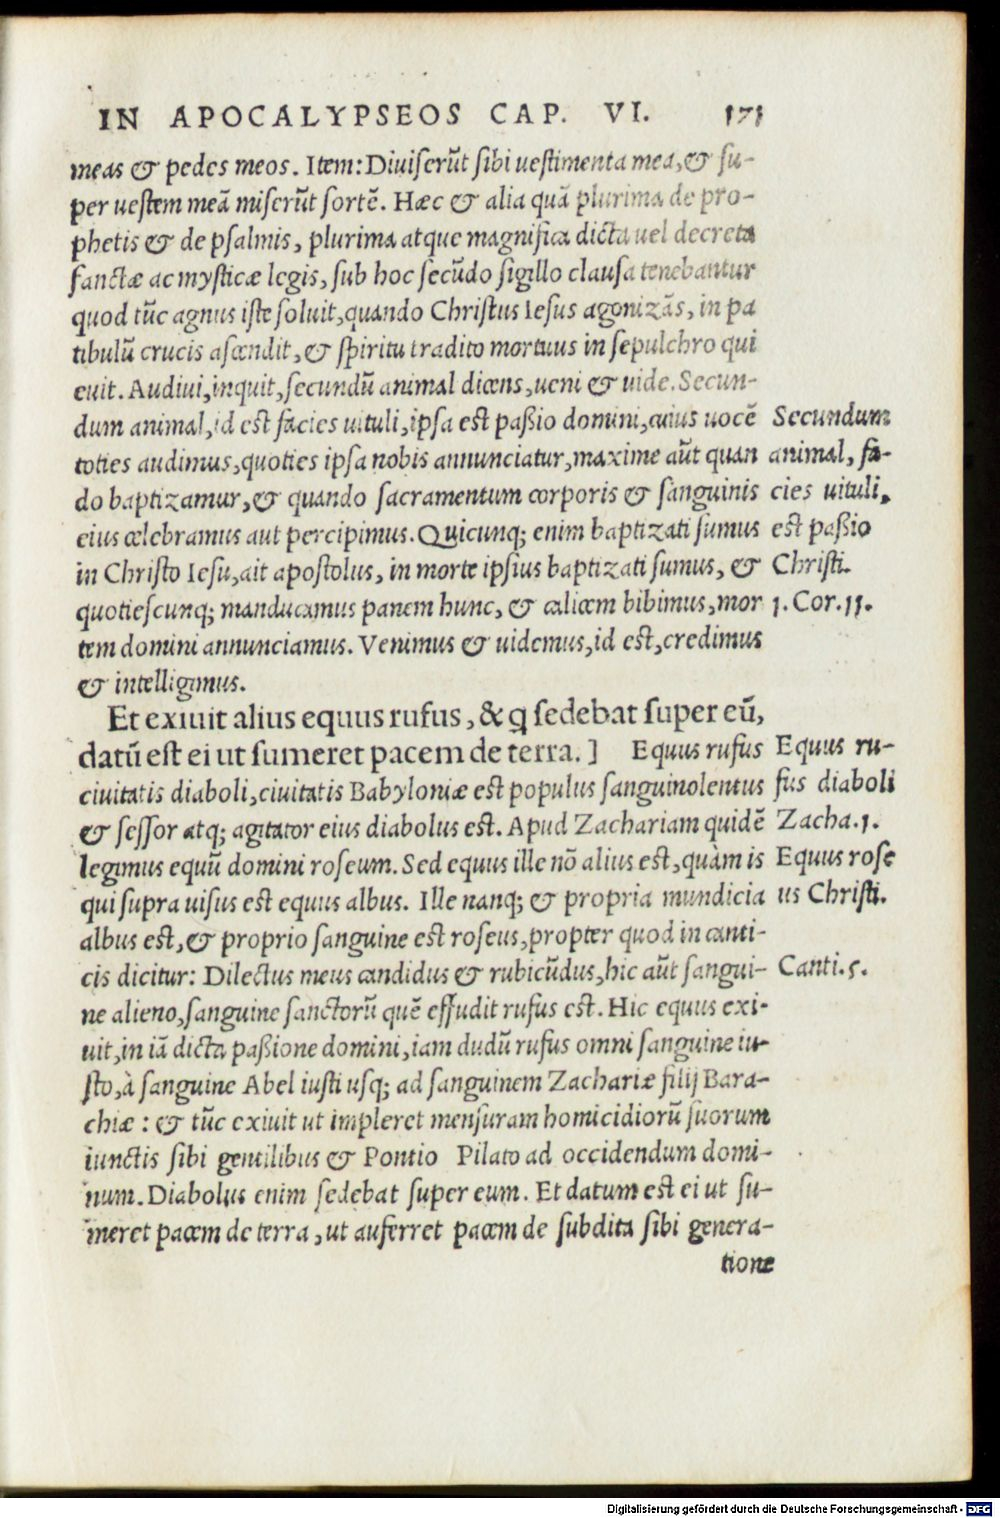 IN APOCALYPSEOS CAP. VI. 171
meas & pedes meos. Item: Diuiserūt sibi uestimenta mea, & su-
per uestem meā miserūt sortē. Hæc & alia quā plurima de pro-
phetis & de psalmis, plurima atque magnifica dicta uel decreta
sanctæ ac mysticæ legis, sub hoc secūdo sigillo clausa tenebantur
quod tūc agnus iste soluit, quando Christus Iesus agonizās, in pa
tibulū crucis ascendit, & spiritu tradito mortuus in sepulchro qui
euit. Audiui, inquit, secundū animal dicens, ueni & uide. Secun-
dum animal, id est facies uituli, ipsa est paßio domini, cuius uocē
toties audimus, quoties ipsa nobis annunciatur, maxime aūt quan
do baptizamur, & quando sacramentum corporis & sanguinis
eius celebramus aut percipimus. Quicunq; enim baptizati sumus
in Christo Iesu, ait apostolus, in morte ipsius baptizati sumus, &
quotiescunq; manducamus panem hunc, & calicem bibimus, mor
tem domini annunciamus. Venimus & uidemus, id est, credimus
& intelligimus.
Secundum
animal, fa-
cies uituli,
est paßio
Christi.
1. Cor. 11.
Et exiuit alius equus rufus, & q̨ sedebat super eū,
datū est ei ut sumeret pacem de terra. ] Equus rufus
ciuitatis diaboli, ciuitatis Babyloniæ est populus sanguinolentus
& sessor atq; agitator eius diabolus est. Apud Zachariam quidē
legimus equū domini roseum. Sed equus ille nō alius est, quàm is
qui supra uisus est equus albus. Ille nanq; & propria mundicia
albus est, & proprio sanguine est roseus, propter quod in canti-
cis dicitur: Dilectus meus candidus & rubicūdus, hic aūt sangui-
ne alieno, sanguine sanctorū quē effudit rufus est. Hic equus exi-
uit, in iā dicta paßione domini, iam dudū rufus omni sanguine iu-
sto, à sanguine Abel iusti usq; ad sanguinem Zachariæ filij Bara-
chiæ: & tūc exiuit ut impleret mensuram homicidiorū suorum
iunctis sibi gentilibus & Pontio Pilato ad occidendum domi-
num. Diabolus enim sedebat super eum. Et datum est ei ut su-
meret pacem de terra, ut auferret pacem de subdita sibi genera-
tione
Equus ru-
fus diaboli
Zacha. 1.
Equus rose
us Christi.
Canti. 5.
Digitalisierung gefördert durch die Deutsche Forschungsgemeinschaft - DFG